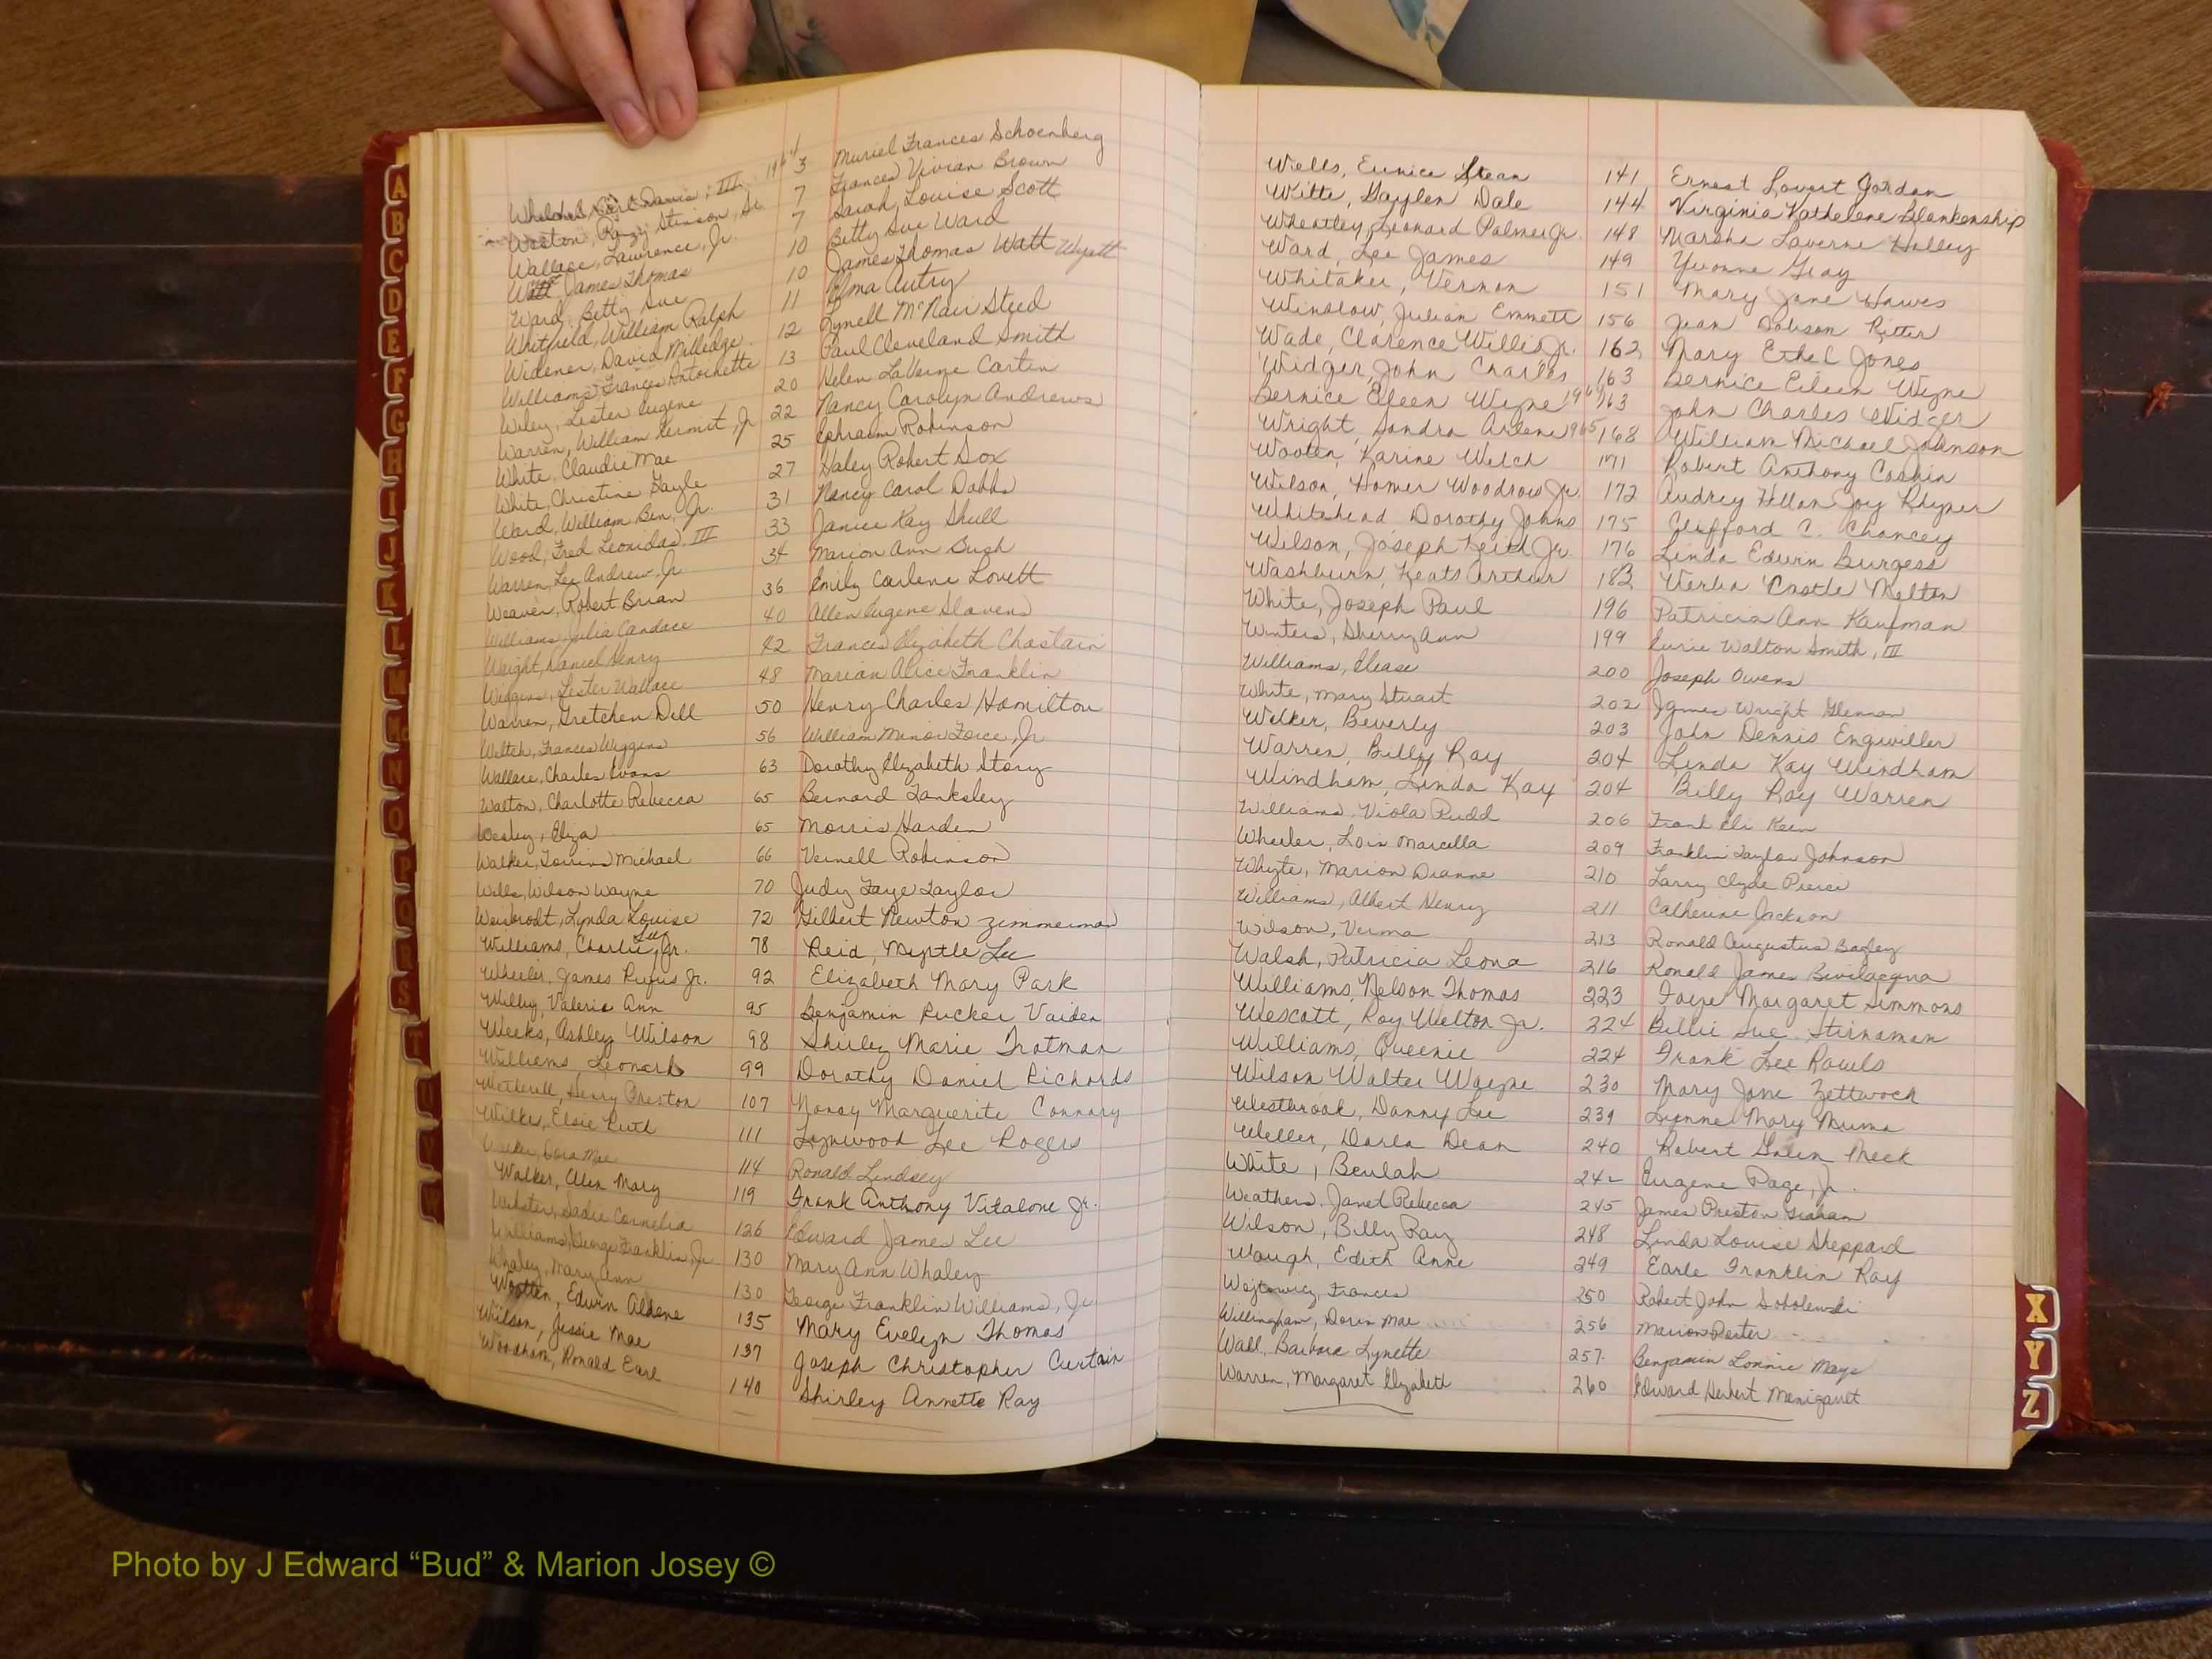 Whelchel, Carl Davis, III 1964 3 Muriel Frances Schoenberg
Weston, Stinson, Sr. 7 Frances Vivian Brown
Wallace, Lawrence, Jr. 7 Sarah Louise Scott
Watt, James Thomas 10 Betty Sue Ward
Ward, Betty Sue 10 James Thomas Watt Wyatt
Whitfield, William Ralph 11 Elma Autry
Widener, David Milledge 12 Lynell McNair Steed
Williams, Frances Antoinette 13 Paul Cleveland Smith
Wiley, Lester Eugene 20 Helen LaVerne Carter
Warren, William Kermit, Jr 22 Nancy Carolyn Andrews
White, Claudie Mae 25 Ephraim Robinson
White, Christine Gayle 27 Haley Robert Sox
Ward, William Ben, Jr. 31 Nancy Carol Dobbs
Wood, Fred Leonidas, III 33 Janice Kay Shull
Warren, Lee Andrew, Jr 34 Marion Ann Bush
Weaver, Robert Brian 36 Emily Carlene Lovett
Williams, Julia Candace 40 Allen Eugene Slavens
Wright, Daniel Henry 42 Frances Elizabeth Chastain
Wiggins, Lester Wallace 48 Marian Alice Franklin
Warren, Gretchen Dell 50 Henry Charles Hamilton
Welch, Frances Wiggins 56 William Minor Force, Jr
Wallace, Charles Evans 63 Dorothy Elizabeth Story
Walton, Charlotte Rebecca 65 Bernard Tanksley
Wesley, Eliza 65 Morris Harden
Walker, Michael 66 Vernell Robinson
Wills, Wilson Wayne 70 Judy Faye Taylor
Weisbrodt, Lynda Louise 72 Gilbert Newton Zimmerman
Williams, Charlie Lee, Jr. 78 Reid, Myrtle Lee
Wheeler, James Rufus Jr. 92 Elizabeth Mary Park
Willey, Valerie Ann 95 Benjamin Rucker Vaiden
Weeks, Ashley Wilson 98 Shirley Marie Trotman
Williams, Leonard 99 Dorothy Daniel Richards
Wetherell, Henry Preston 107 Nancy Marguerite Connary
Wilkes, Elsie Ruth 111 Lynwood Lee Rogers
Walker, Cora Mae 114 Ronald Lindsey
Walker, Alen Mary 119 Frank Anthony Vitalone Jr.
Webster, Sadie Cornelia 126 Edward James Lee
Williams, George Franklin, Jr 130 Mary Ann Whaley
Whaley, Mary Ann 130 George Franklin Williams, Jr
Wootten, Edwin Aldene 135 Mary Evelyn Thomas
Wilson, Jessie Mae 137 Joseph Christopher Curtain
Woodham, Ronald Earl 140 Shirley Annette Ray
Wells, Eunice Stean 141 Ernest Lovert Jordan
Witte, Gaylen Dale 144 Virginia Kathelene Blankenship
Wheatley, Leonard Palmer Jr. 148 Marsha Laverne Holley
Ward, Lee James 149 Yvonne Gray
Whitaker, Vernon 151 Mary Jane Hawes
Winslow, Julian Emmett 156 Jean Dobson Ritter
Wade, Clarence Willis Jr. 162 Mary Ethel Jones
Widger, John Charles 163 Bernice Eileen Weyne
Bernice Eileen Weyne 1964 163 John Charles Widger
Wright, Sandra Arlene 1965 168 William Michael Johnson
Wooten, Karine Welch 171 Robert Anthony Cashin
Wilson, Homer Woodrow Jr. 172 Audrey Joy Rhyner
Whitehead Dorothy Johns 175 Clifford C. Chancey
Wilson, Joseph Keith Jr. 176 Linda Edwin Burgess
Washburn, Keats Arthur 182 Verba Castle Melton
White, Joseph Paul 196 Patricia Ann Kaufman
Winters, Sherry Ann 199 Walton Smith, III
Williams, Elease 200 Joseph Owens
White, Mary Stuart 202 James Wright Glennon
Welker, Beverly 203 John Dennis Engwiller
Warren, Billy Ray 204 Linda Kay Windham
Windham, Linda Kay 204 Billy Ray Warren
Williams, Viola Rudd 206 Frank Eli Keen
Wheeler, Lois Marcella 209 Franklin Taylor Johnson
Whyte, Marion Dianne 210 Larry Clyde Pierce
Williams, Albert Henry 211 Catherine Jackson
Wilson, Verma 213 Ronald Augustus Bagley
Walsh, Patricia Leona 216 Ronald James Bevilacqua
Williams, Nelson Thomas 223 Faye Margaret Simmons
Wescott, Roy Welton Jr. 224 Billie Sue Stirnaman
Williams, Queenie 224 Frank Lee Rawls
Wilson Walter Wayne 230 Mary Jane Zettwoch
Westbrook, Danny Lee 239 Lynne Mary Muma
Weller, Darla Dean 240 Robert Galen Pheck
White, Beulah 242 Eugene Page, Jr.
Weathers, Janet Rebecca 245 James Preston Graham
Wilson, Billy Ray 248 Linda Louise Sheppard
Waugh, Edith Anne 249 Earle Franklin Ray
Wojtowicz, Frances 250 Robert John Sobolewski
Willingham, Doris Mae 256 Marion Porter
Wall, Barbara Lynette 257 Benjamin Lonnie Mays
Warren, Margaret Elizabeth 260 Edward Herbert Menigault
A
B
C
D
E
F
G
H
I
J
K
L
M
Mc
N
O
P
Q
R
S
T
U
V
W
X
Y
Z
Photo by J Edward “Bud” & Marion Josey ©